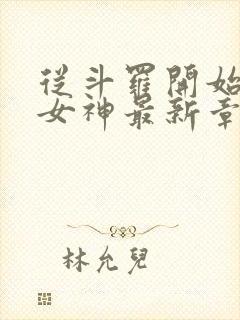 從斗羅開始
女神最新章
林允兒